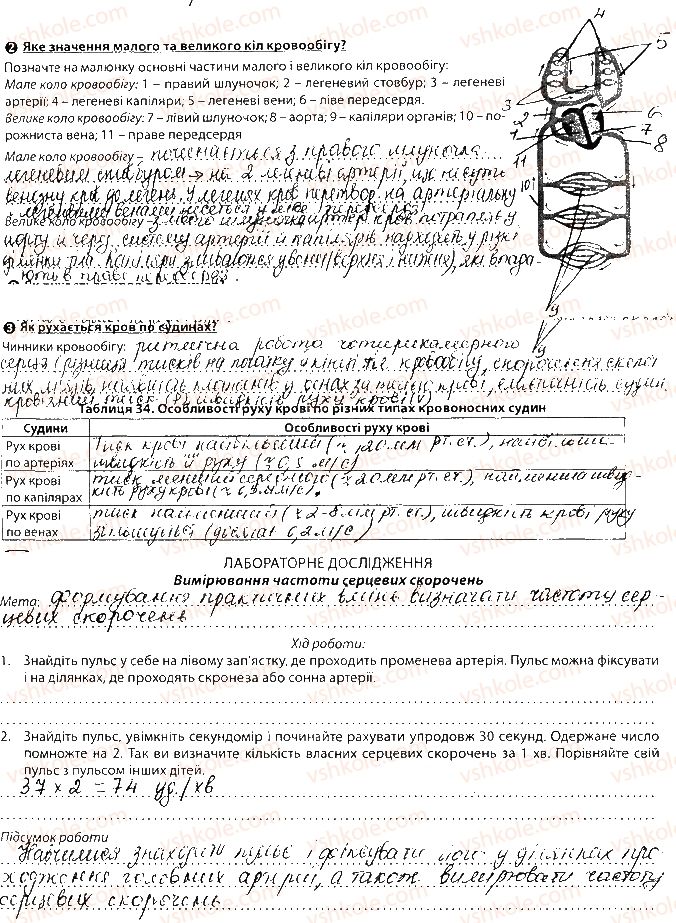 ❷ Яке значення малого та великого кіл кровообігу?
Позначте на малюнку основні частини малого і великого кіл кровообігу:
Мале коло кровообігу: 1 – правий шлуночок; 2 – легеневий стовбур; 3 – легеневі
артерії; 4 – легеневі капіляри; 5 – легеневі вени; 6 – ліве передсердя.
Велике коло кровообігу: 7 – лівий шлуночок; 8 – аорта; 9 – капіляри органів; 10 – по-
рожниста вена; 11 – праве передсердя
Мале коло кровообігу – починається з правого шлуночка
легеневим стовбуром → на 2 легеневі артерії, що несуть
венозну кров до легень. У легенях кров перетвор. на артеріальну
і легеневими венами несеться у ліве передсердя
Велике коло кровообігу – з лівого шлуночка артер. кров потрапляє у
аорту и через систему артерій й капілярів надходить у різні
ділянки тіла. Капіляри зливаються у вени (верхня і нижня), які впада
ють в праве передсердя.
4
5
3
2
1
6
7
8
11
10
9
9
❸ Як рухається кров по судинах?
Чинники кровообігу: ритмічна робота чотирикамерного
серця, різниця тисків на початку и кінці кіл кровообігу, скорочення скелет
них м'язів, наявність клапанів у венах, за тиском крові, еластичність судин,
кров'яний тиск (P), швидкість руху крові (V)
Таблиця 34. Особливості руху крові по різних типах кровоносних судин
Судини Особливості руху крові
Рух крові по артеріях Тиск крові найбільший (≈ 120 мм рт. ст.), найбільша
швидкість й руху (≈ 0,5 м/с)
Рух крові по капілярах тиск менший середнього (≈ 20 мм рт. ст.), найменша швид-
кість руху крові (≈ 0,5 мм/с).
Рух крові по венах тиск найменший (≈ 2-8 мм рт. ст.), швидкість крові руху
збільшується (досягає 0,2 м/с)
ЛАБОРАТОРНЕ ДОСЛІДЖЕННЯ
Вимірювання частоти серцевих скорочень
Мета: формування практичних вмінь визначати частоту сер-
цевих скорочень
Хід роботи:
1. Знайдіть пульс у себе на лівому зап'ястку, де проходить променева артерія. Пульс можна фіксувати
і на ділянках, де проходять скронева або сонна артерії.
2. Знайдіть пульс, увімкніть секундомір і починайте рахувати упродовж 30 секунд. Одержане число
помножте на 2. Так ви визначите кількість власних серцевих скорочень за 1 хв. Порівняйте свій
пульс з пульсом інших дітей.
37 × 2 = 74 уд./хв
Підсумок роботи
Навчилися знаходити пульс і фіксувати його у ділянках про
ходження головних артерій, а також вимірювати частоту
серцевих скорочень
vshkole.com